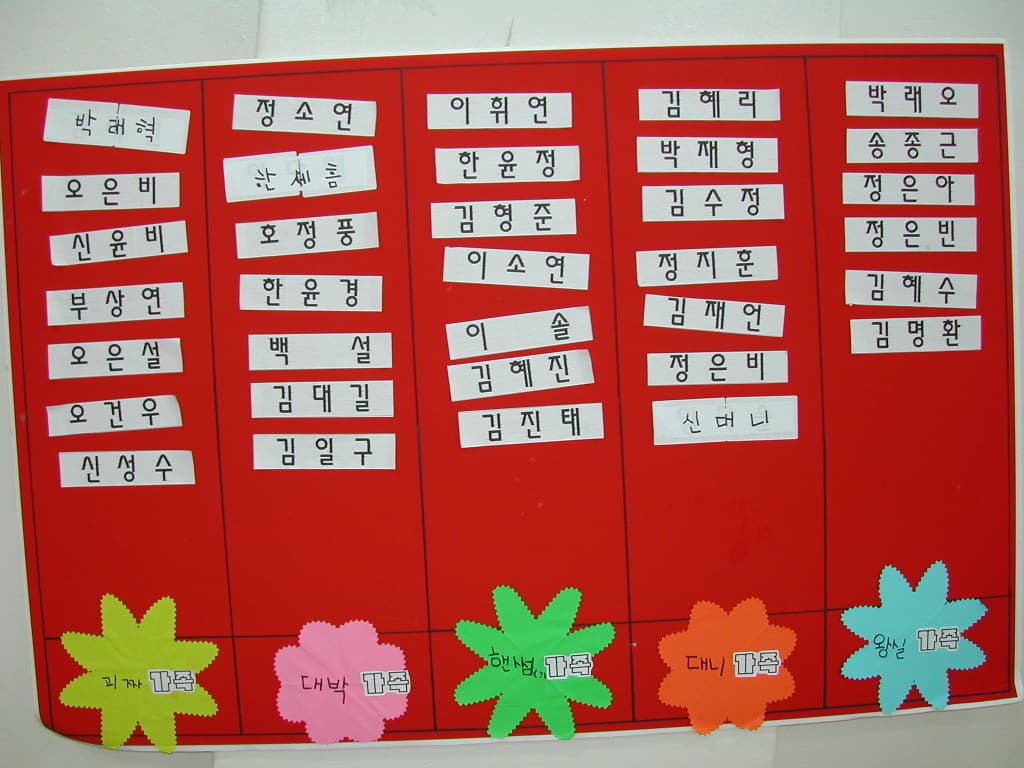 박래혁
오은비
신윤비
부상연
오은설
오건우
신성수
괴짜 가족
정소연
한세름
호정풍
한윤경
백 설
김대길
김일구
대박 가족
이휘연
한윤정
김형준
이소연
이 솔
김혜진
김진태
핸썸 가족
김혜리
박재형
김수정
정지훈
김재언
정은비
신머니
대니 가족
박래오
송종근
정은아
정은빈
김혜수
김명환
왕실 가족